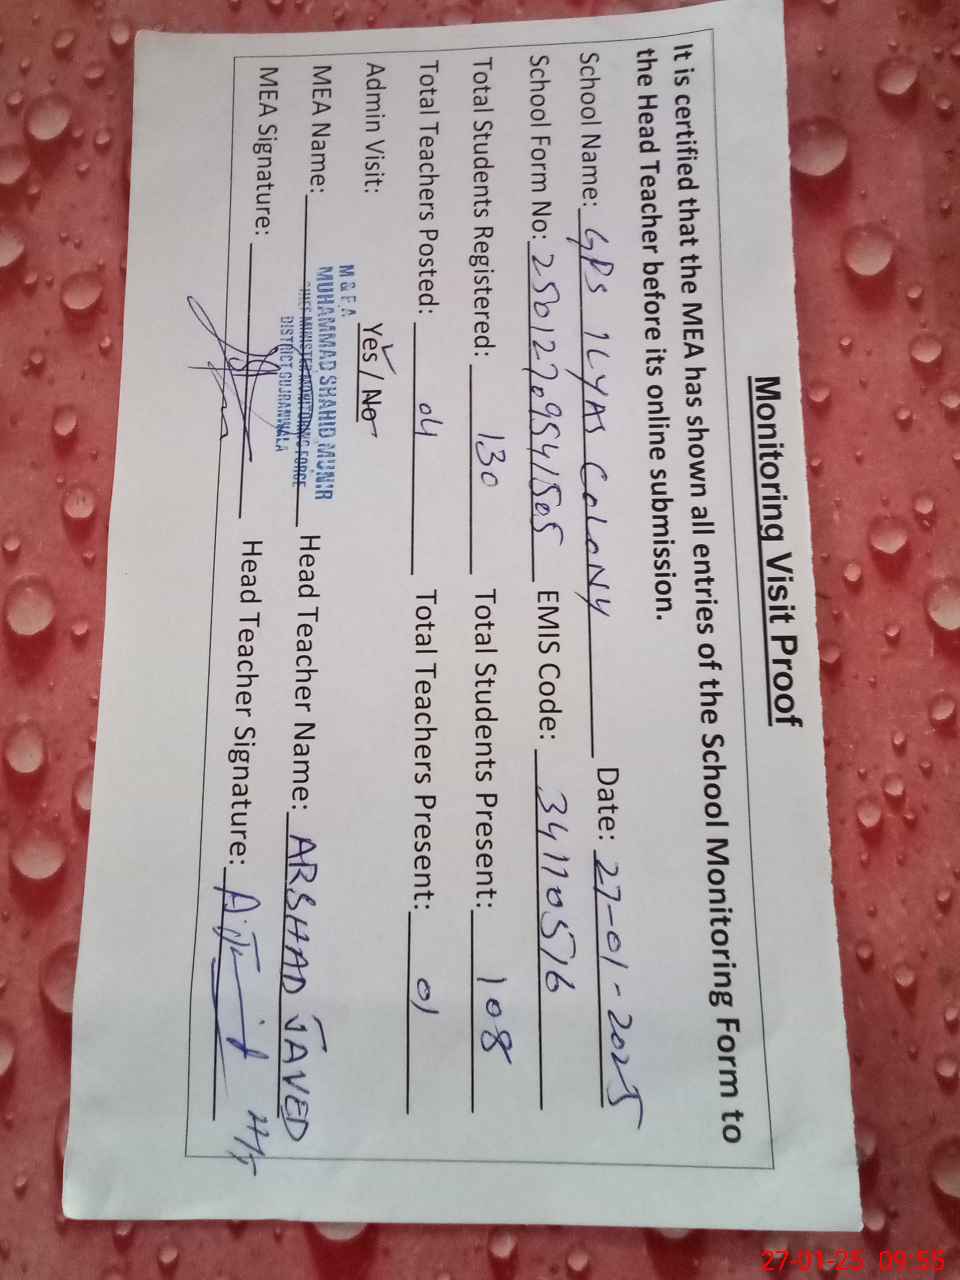 Monitoring Visit Proof
It is certified that the MEA has shown all entries of the School Monitoring Form to
the Head Teacher before its online submission.
School Name: GPS ILYAS COLONY Date: 27-01-2025
School Form No: 25012709541505 EMIS Code: 34110516
Total Students Registered: 130 Total Students Present: 108
Total Teachers Posted: 04 Total Teachers Present: 01
Admin Visit: Yes / No
M & E A
MEA Name: MUHAMMAD SHAHID MUNIR Head Teacher Name: ARSHAD JAVED
CHIEF MINISTER MONITORING FORCE
DISTRICT GUJRANWALA
MEA Signature: Head Teacher Signature:
27-01-25 09:55